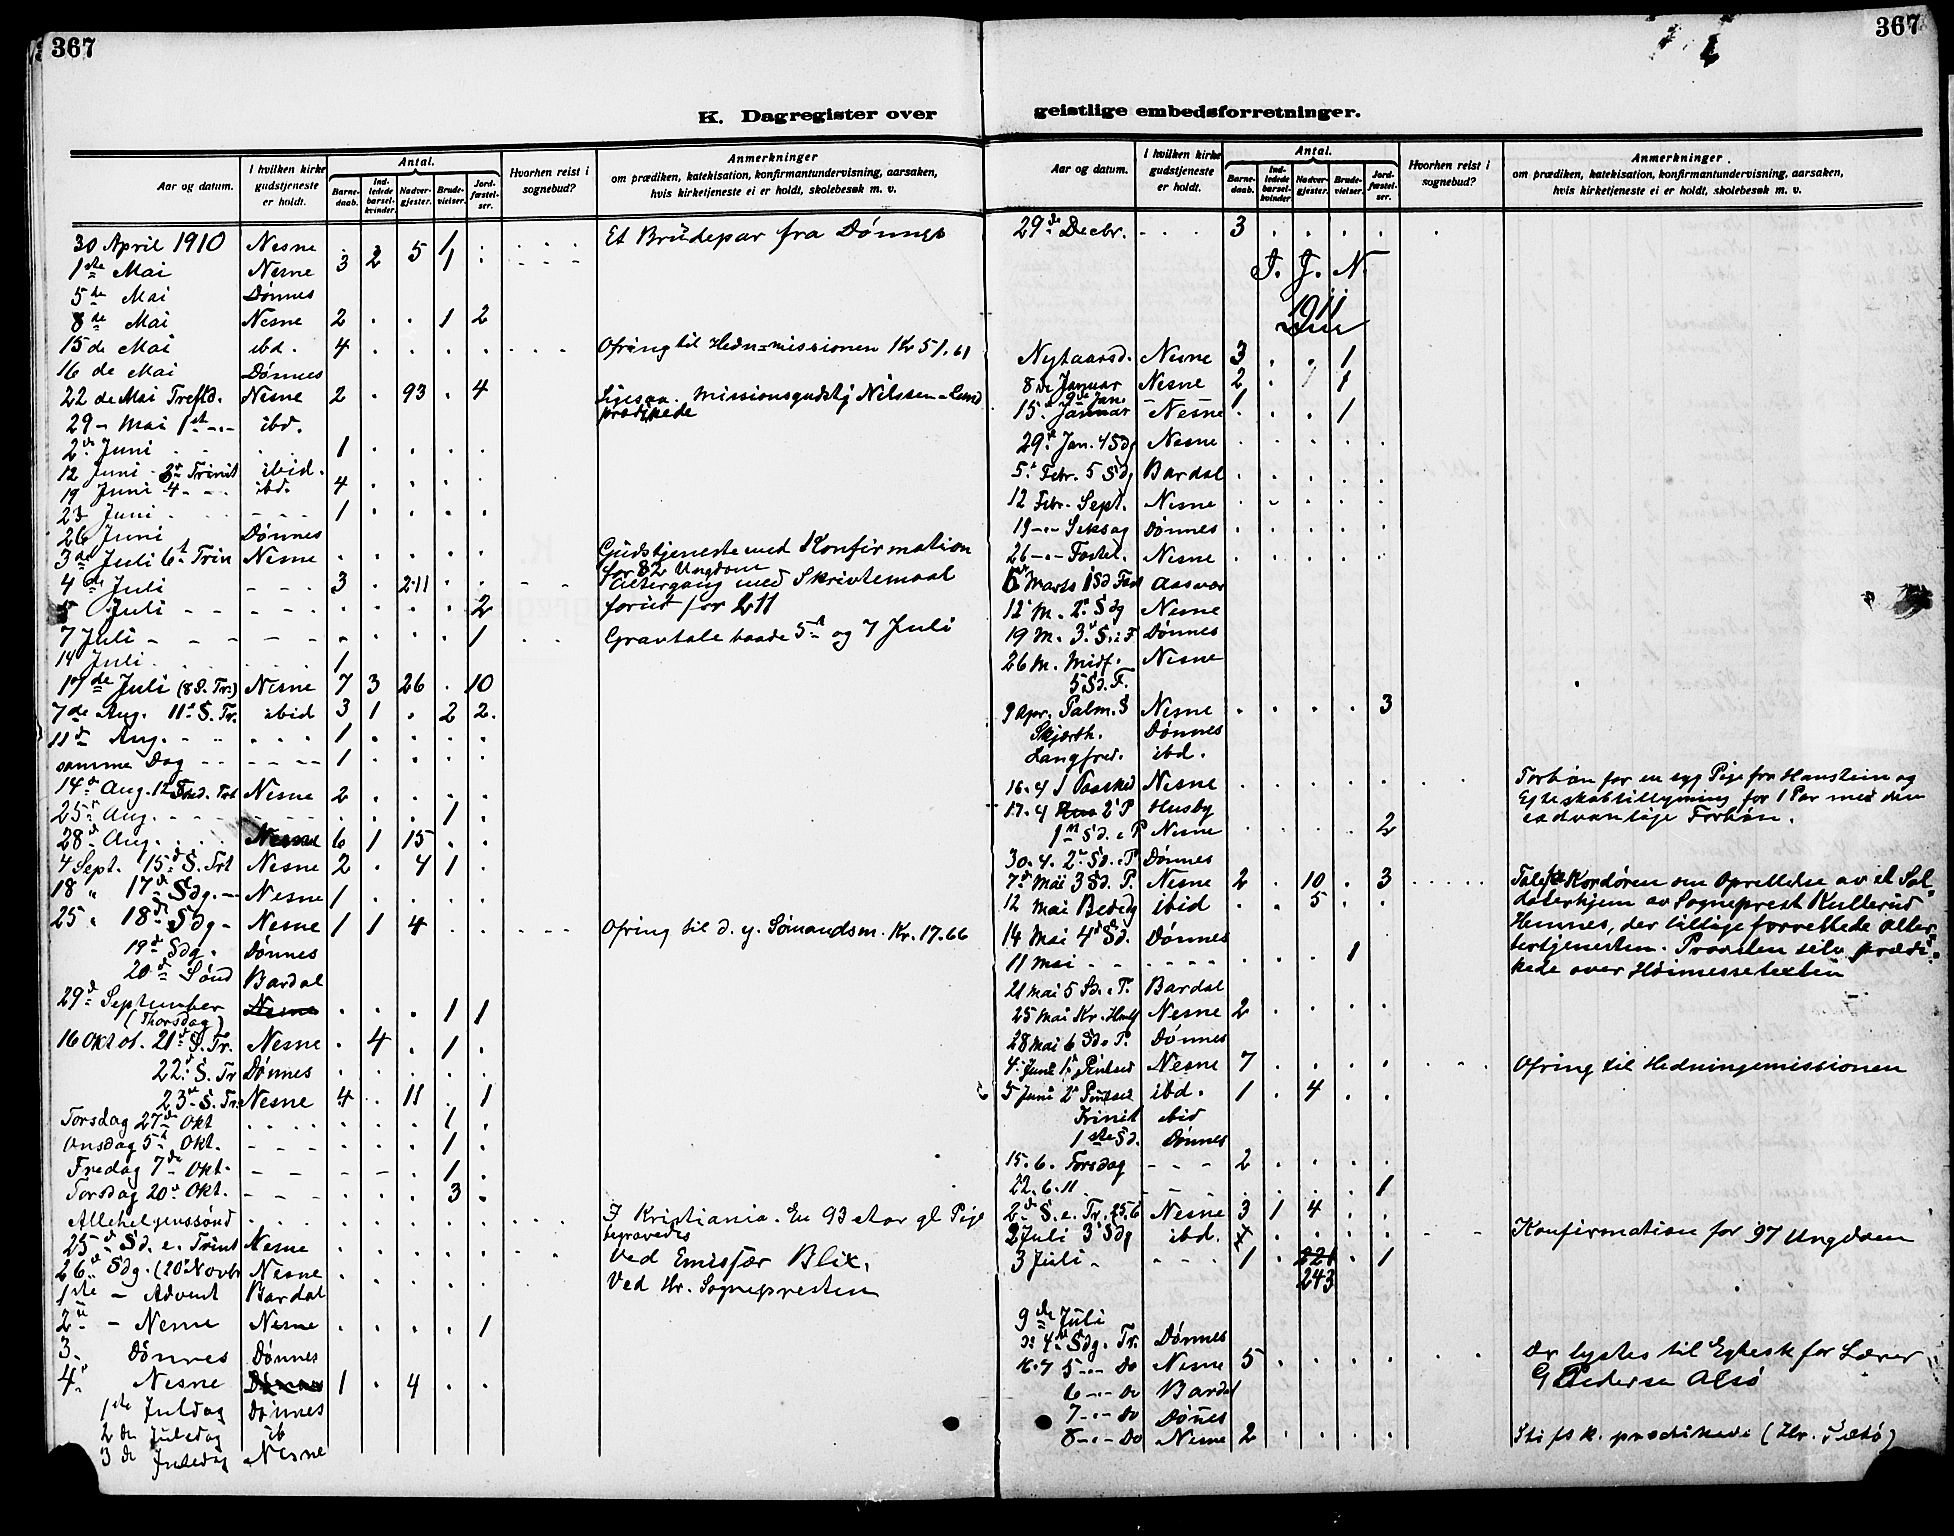 367
K. Dagregister over
Aar og datum. I hvilken kirke gudstjeneste er holdt. Antal. Barnedaab. Indledede barselkvinder. Nadvergjester. Brudevielser. Jordfæstelser. Hvorhen reist i sognebud? Anmerkninger om prædiken, katekisation, konfirmantundervisning, aarsaken, hvis kirketjeneste ei er holdt, skolebesøk m. v.
30 April 1910 Nesne . . 5 1 . . . . Et Brudepar fra Dønnes
1ste Mai Nesne 3 2 . 1 . - - -
5de Mai Dønnes
8de Mai Nesne 2 . . 1 2
15 de Mai ibd. 4 . . . . . . . Ofring til Hedn=missionen Kr 51.61
16 de Mai Dønnes
22 de Mai Trefld. Nesne 2 . 93 . 4 Ligesaa. Missionsgudstj Nilssen-Lund
prædikede
29 - Mai 1st - - - ibd.
2den Juni 1 . . . .
12 Juni - 3d Trinit ibid.
19 Juni 4 - - . ibd. 4 . . . .
23 Juni . . . - - - 1 . . . .
26 Juni Dønnes
3de Juli 6t Trin Nesne . . . . . Gudstjeneste med Konfirmation
for 82 Ungdom
4de Juli - - - 3 . 211 . . - - Altergang med Skriftemaal
5 Juli - - - - - . . . . 2 forut for 211
7 Juli - - - - - . . . . 1 . . Gravtale baade 5te og 7 Juli
14 Juli . . . . . 1
17de Juli (8 S. Tr.) Nesne 7 3 26 . 10
7de Aug. 11t S. Tr. ibid 3 1 . 2 2.
11d Aug. - - . . . 1 . . . .
samme Dag - - - - - - 1 . . . .
14d Aug. 12 Snd. Trt Nesne 2 . . . .
25 Aug. - - - - - . . . 1 .
28d Aug. . . . Nesne 6 1 15 . .
4 Sept. 15d S. Trt Nesne 2 . 4 1 .
18 " 17d Sdg. - Nesne 1 . . . .
25 " 18d Sdg - Nesne 1 1 4 . . . - - - Ofring til d. y. Sømandsm. Kr. 17.66
19d Sdg. Dønnes
20d Sønd Bardal
29d September Nesne . . . 1 1
(Thorsdag)
16 Oktob. 21d S. Tr. Nesne . 4 . 1 .
22d S. Tr Dønnes . . . . .
23d S. Tr. Nesne 4 . 11 . 1
Torsdag 27d Okt . . . . . . . 1 .
Onsdag 5t Okt. - - - - . . . 1 .
Fredag 7de Okt. - - - - - . 1 .
Torsdag 20d Okt. - - - . . . 3 .
Allehelgenssønd . . . . . . . . . . . . I Kristiania. En 93 aar gl Pige
begravedes
25d Sd. e. Trint Nesne . . . . . . . Ved Emissær Blix.
26d Sdg. (20d Novbr Nesne . . . . . . Ved Hr. Sognepresten
1ste - Advent Bardal
2d - Nesne Nesne . . . . 1
3. Dønnes Dønnes
4d Nesne Dønnes 1 . 4 . .
1ste Juledag Dønnes
2 de Juledag ib
3 de Juledag Nesne
367
geistlige embedsforretninger.
Aar og datum. I hvilken kirke gudstjeneste er holdt. Antal. Barnedaab. Indledede barselkvinder. Nadvergjester. Brudevielser. Jordfæstelser. Hvorhen reist i sognebud? Anmerkninger om prædiken, katekisation, konfirmantundervisning, aarsaken, hvis kirketjeneste ei er holdt, skolebesøk m. v.
29de Decbr. - . . . 3 . . . . .
I. J. N.
1911
Nytaarsd. Nesne 3 . . 1
8de Januar Nesne 2 . . 1
9de Jan. 1
15. Januar - Nesne . . . 1
29d Jan. 4 Sdg Nesne . . . . .
5t Febr. 5 Sdg Bardal . . . . .
12 Febr. Sept. Nesne . - . . .
19 - " - Seksag Dønnes . . . . .
26 - " - Fastel. Nesne . . . . .
6 Marts 1 Sd Fast Aasvær
12 M. 2d Sdg Nesne
19 M. 3d S. i F Dønnes
26 M. Midf. Nesne
5 Sd. F.
9 Apr. Palm. S Nesne . . . . 3
Skjærth. Dønnes
Langfred. ibd.
16.4 1 Paasked Nesne . . . . . . . Forbøn for en syg Pige fra Hanstein og
17.4 2d P Husby Egteskabtillysning for 1 Par med den
1ste Sd. e P Nesne . . . . 2 sedvanlige Forbøn.
30.4. 2d Sd. e. P. Dønnes
7d Mai 3 Sd. P. Nesne 2 . 10 . 3 . . . . . Tale fra Kordøren om Oprettelse av et Sol-
12 Mai Bededg ibid . . 5 . . daterhjem av Sogneprest Kullerud
14 Mai 4d Sd. Dønnes Hemnes, der tillige forrettede Alter-
11 Mai - - - - - - . . . 1 tertjenesten. Provsten selv prædi-
21 Mai 5 Sd. e. P. Bardal kede over Høimesseteksten
25 Mai Kr. Hmlf Nesne 2 . . . .
28 Mai 6 Sd. e. P. Dønnes
4. Juni 1ste Pintsed Nesne 7 . . . . . . Ofring til Hedningemissionen
5 Juni 2d Pintsed ibd. 1 . 4 . .
Trinit ibid
1ste Sd. Dønnes
15. 6. Torsdag - - - 2 . . . .
22. 6. 11 . . . . . . . 1
2d S. e. Tr. 25.6 Nesne 3 1 4 . .
2 Juli 3d Sdg ibd. . . . . . - - Konfirmation for 97 Ungdom
3 Juli - - - - 1 . 221 . 1
243
9de Juli
4d Sdg. Tr. Dønnes
16.7 5 - " - Do Nesne 5 . . . . . . Der lystes til Egtesk for Lærer
6 - " - Do Bardal G Pedersen Alsø
7 - " - Do Dønnes
8 - " - Do Nesne 2 . . . . Stifsk. prædikede (Hr.